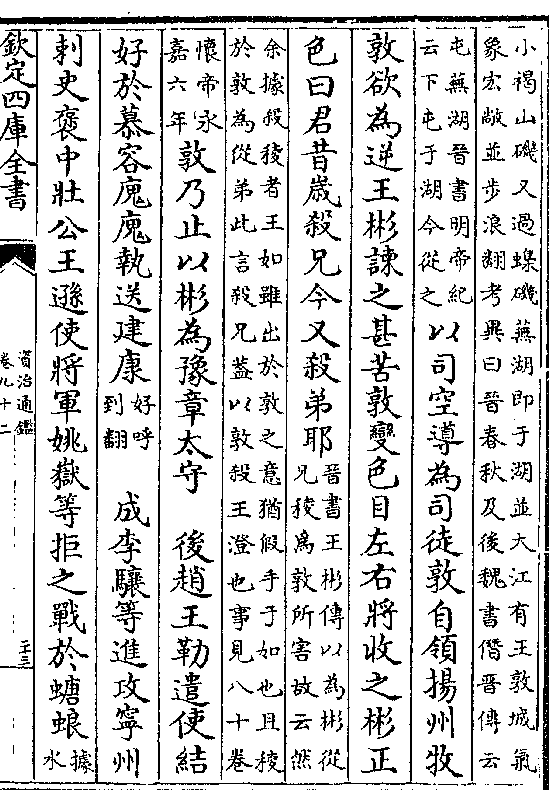 小褐山磯又過蟂磯蕪湖即于湖並大江有王敦城氣
象宏敞並步浪翻考異曰晉春秋及後魏書僭晉傳云
屯蕪湖晉書明帝紀
云下屯于湖今從之
以司空導為司徒敦自領揚州牧
敦欲為逆王彬諫之甚苦敦變色目左右將收之彬正
色曰君昔歲殺兄今又殺弟耶
晉書王彬傳以為彬從
兄稜為敦所害故云然
余據殺稜者王如雖出於敦之意猶假手于如也且稜
於敦為從弟此言殺兄葢以敦殺王澄也事見八十卷
懷帝永
嘉六年
敦乃止以彬為豫章太守 後趙王勒遣使結
好於慕容廆廆執送建康
好呼
到翻
成李驤等進攻寧州
刺史褒中壯公王遜使將軍姚嶽等拒之戰於螗蜋
據
水
欽定四庫全書
資治通鑑
卷九十二
二十三